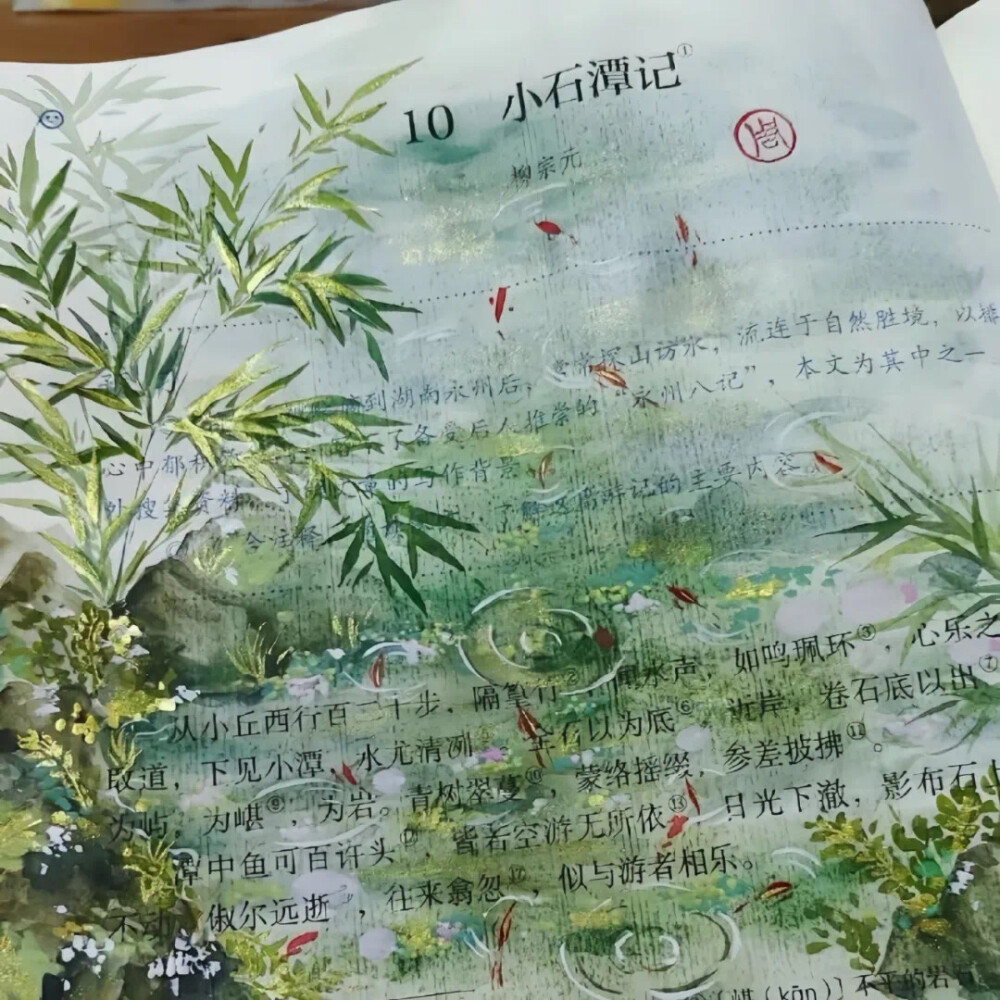 10 小石潭记①
柳宗元
到湖南永州后，常常探山访水，流连于自然胜境，以
心中郁积 了备受后人推崇的“永州八记”，本文为其中之一
外搜 资料 了 的写作背景 了解这篇游记的主要内容。
合注释
从小丘西行百二十步，隔篁竹②，闻水声，如鸣珮环③，心乐之
取道，下见小潭，水尤清冽 。全石以为底⑥，近岸，卷石底以出⑦
为屿，为嵁⑧，为岩。青树翠蔓⑩，蒙络摇缀，参差披拂⑪。
潭中鱼可百许头 ，皆若空游无所依⑬，日光下澈，影布石上
不动，俶尔远逝 ，往来翕忽⑰，似与游者相乐。
〔嵁（kān）〕不平的岩